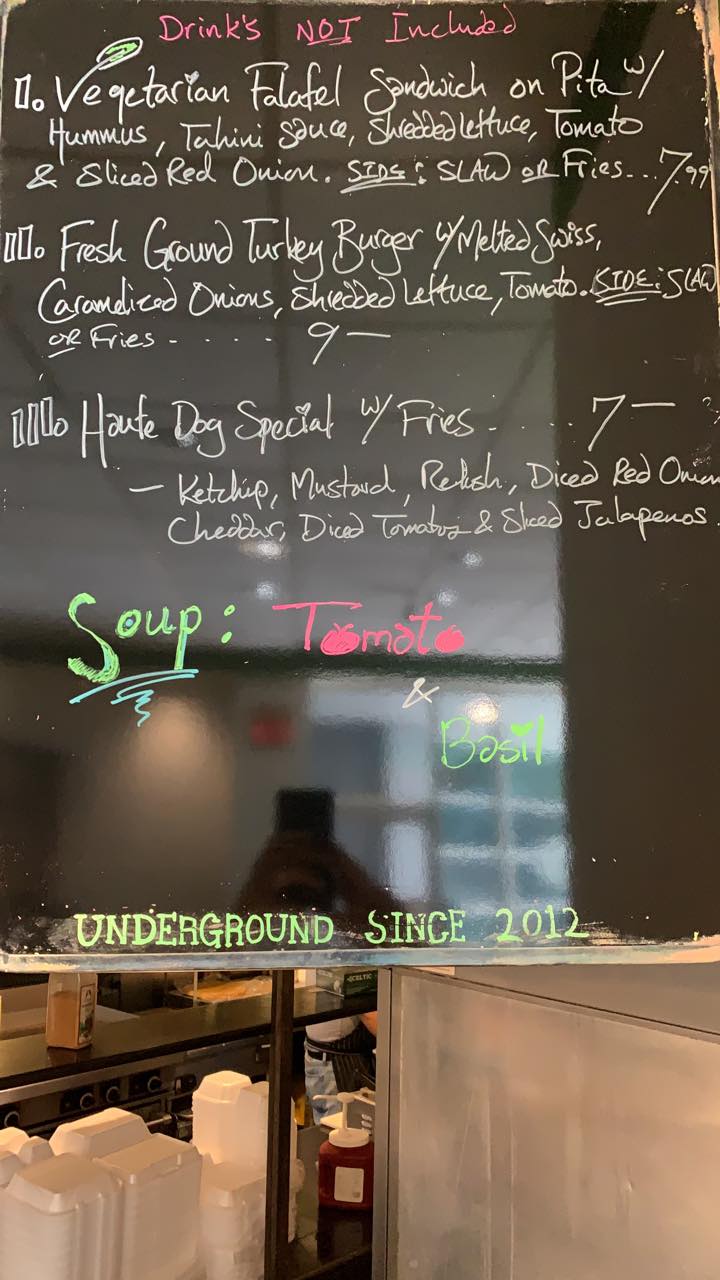 Drink's NOT Included
I. Vegetarian Falafel Sandwich on Pita w/
Hummus, Tahini Sauce, Shredded Lettuce, Tomato
& Sliced Red Onion. SIDE: SLAW OR Fries... 7.99
II. Fresh Ground Turkey Burger w/ Melted Swiss,
Caramelized Onions, Shredded Lettuce, Tomato. SIDE: SLAW
OR Fries - . . . . 9 —
III. Haute Dog Special w/ Fries - . . . . 7 —
— Ketchup, Mustard, Relish, Diced Red Onion
Cheddar, Diced Tomatos & Sliced Jalapenos.
Soup: Tomato
&
Basil
UNDERGROUND SINCE 2012
CELTIC